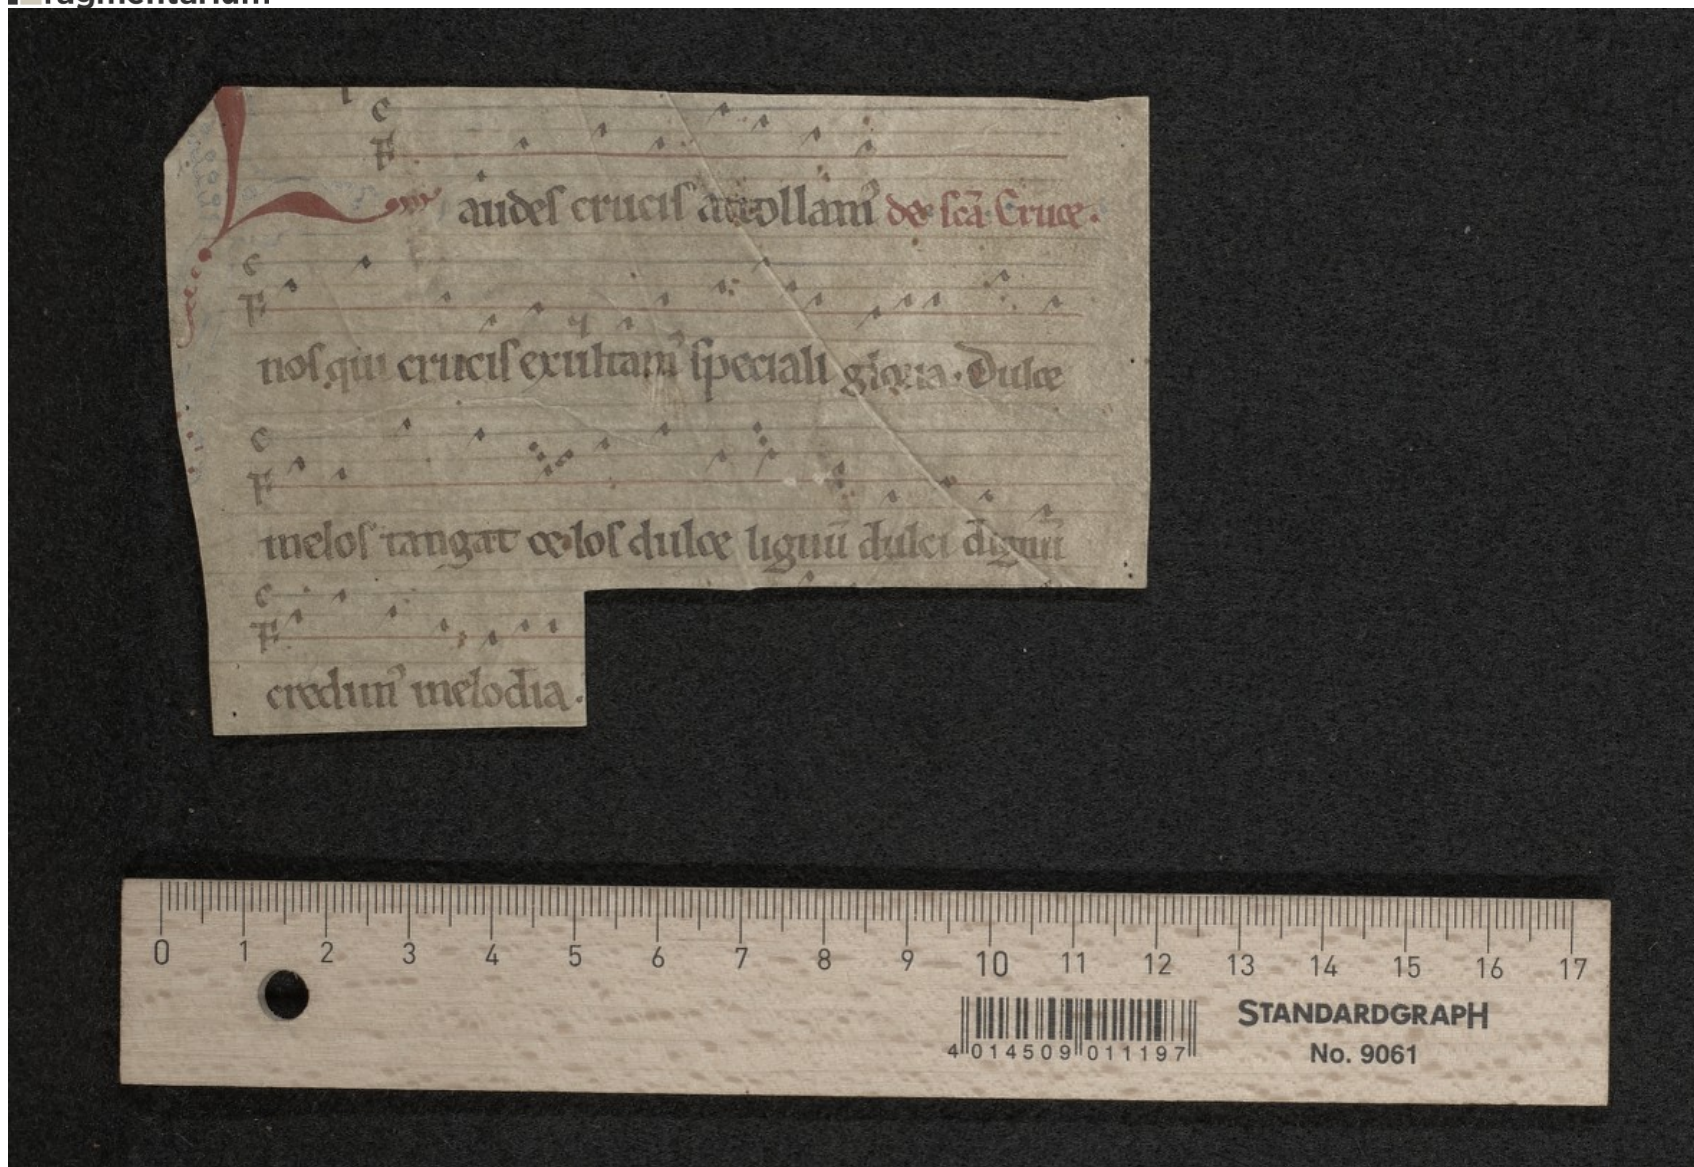 fragmentarium
Laudes crucis attollam᷒ de scā Cruce.
nos qui crucis exultam᷒ speciali gloria. Dulce
melos tangat celos dulce lignū dulci dignū
credim᷒ melodia.
0 1 2 3 4 5 6 7 8 9 10 11 12 13 14 15 16 17
4 014509 011197
STANDARDGRAPH
No. 9061